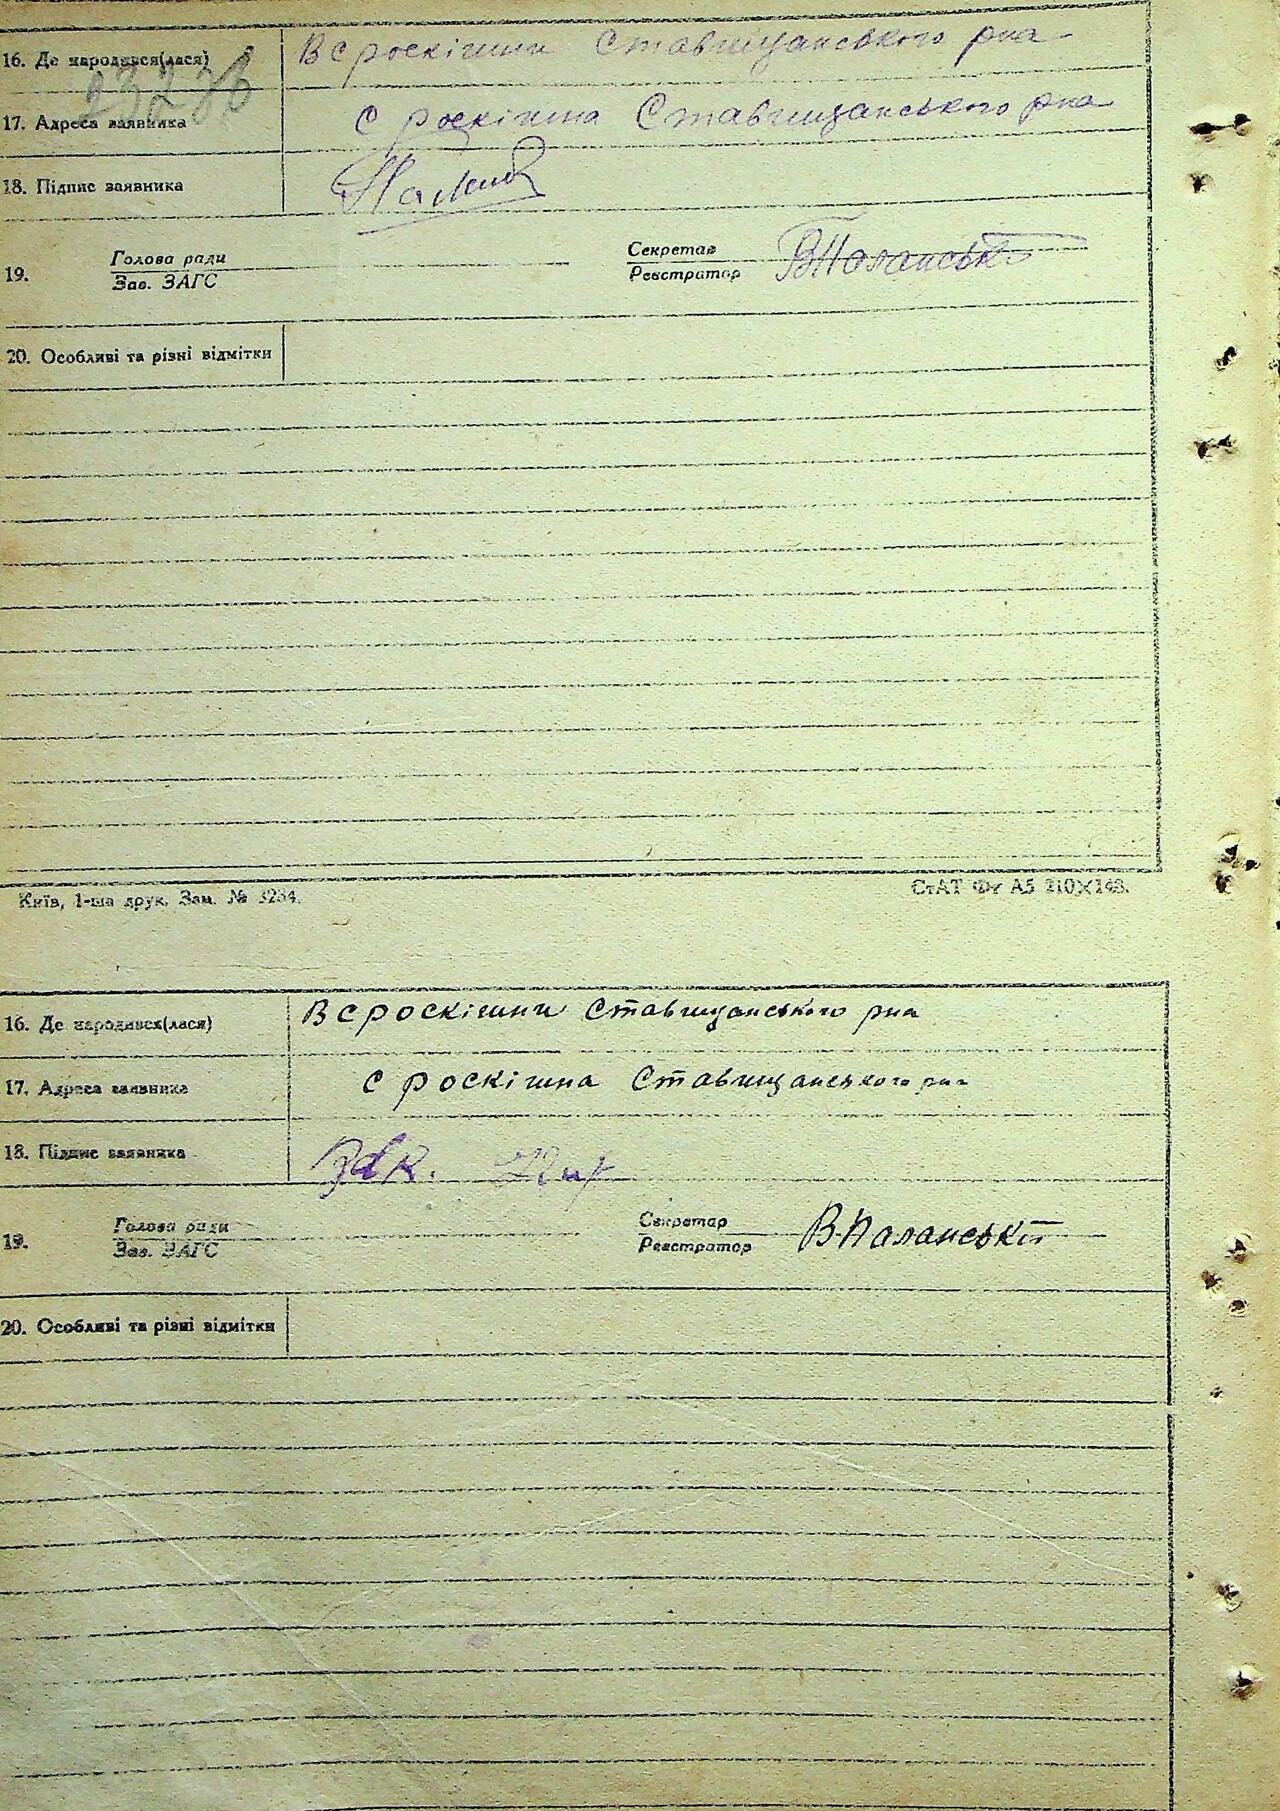 16. Де народився(лася) В с роскішни Ставищанського рна
17. Адреса заявника с роскішна Ставищанського рна
18. Підпис заявника
19. Голова ради Секретар В Паланськ
Зав. ЗАГС Реєстратор
20. Особливі та різні відмітки
Київ, 1-ша друк. Зам. № 3234. СтАТ Фт А5 210×148.
16. Де народився(лася) В с роскішни Ставищанського рна
17. Адреса заявника с роскішна Ставищанського рна
18. Підпис заявника
19. Голова ради Секретар В. Паланськ
Зав. ЗАГС Реєстратор
20. Особливі та різні відмітки